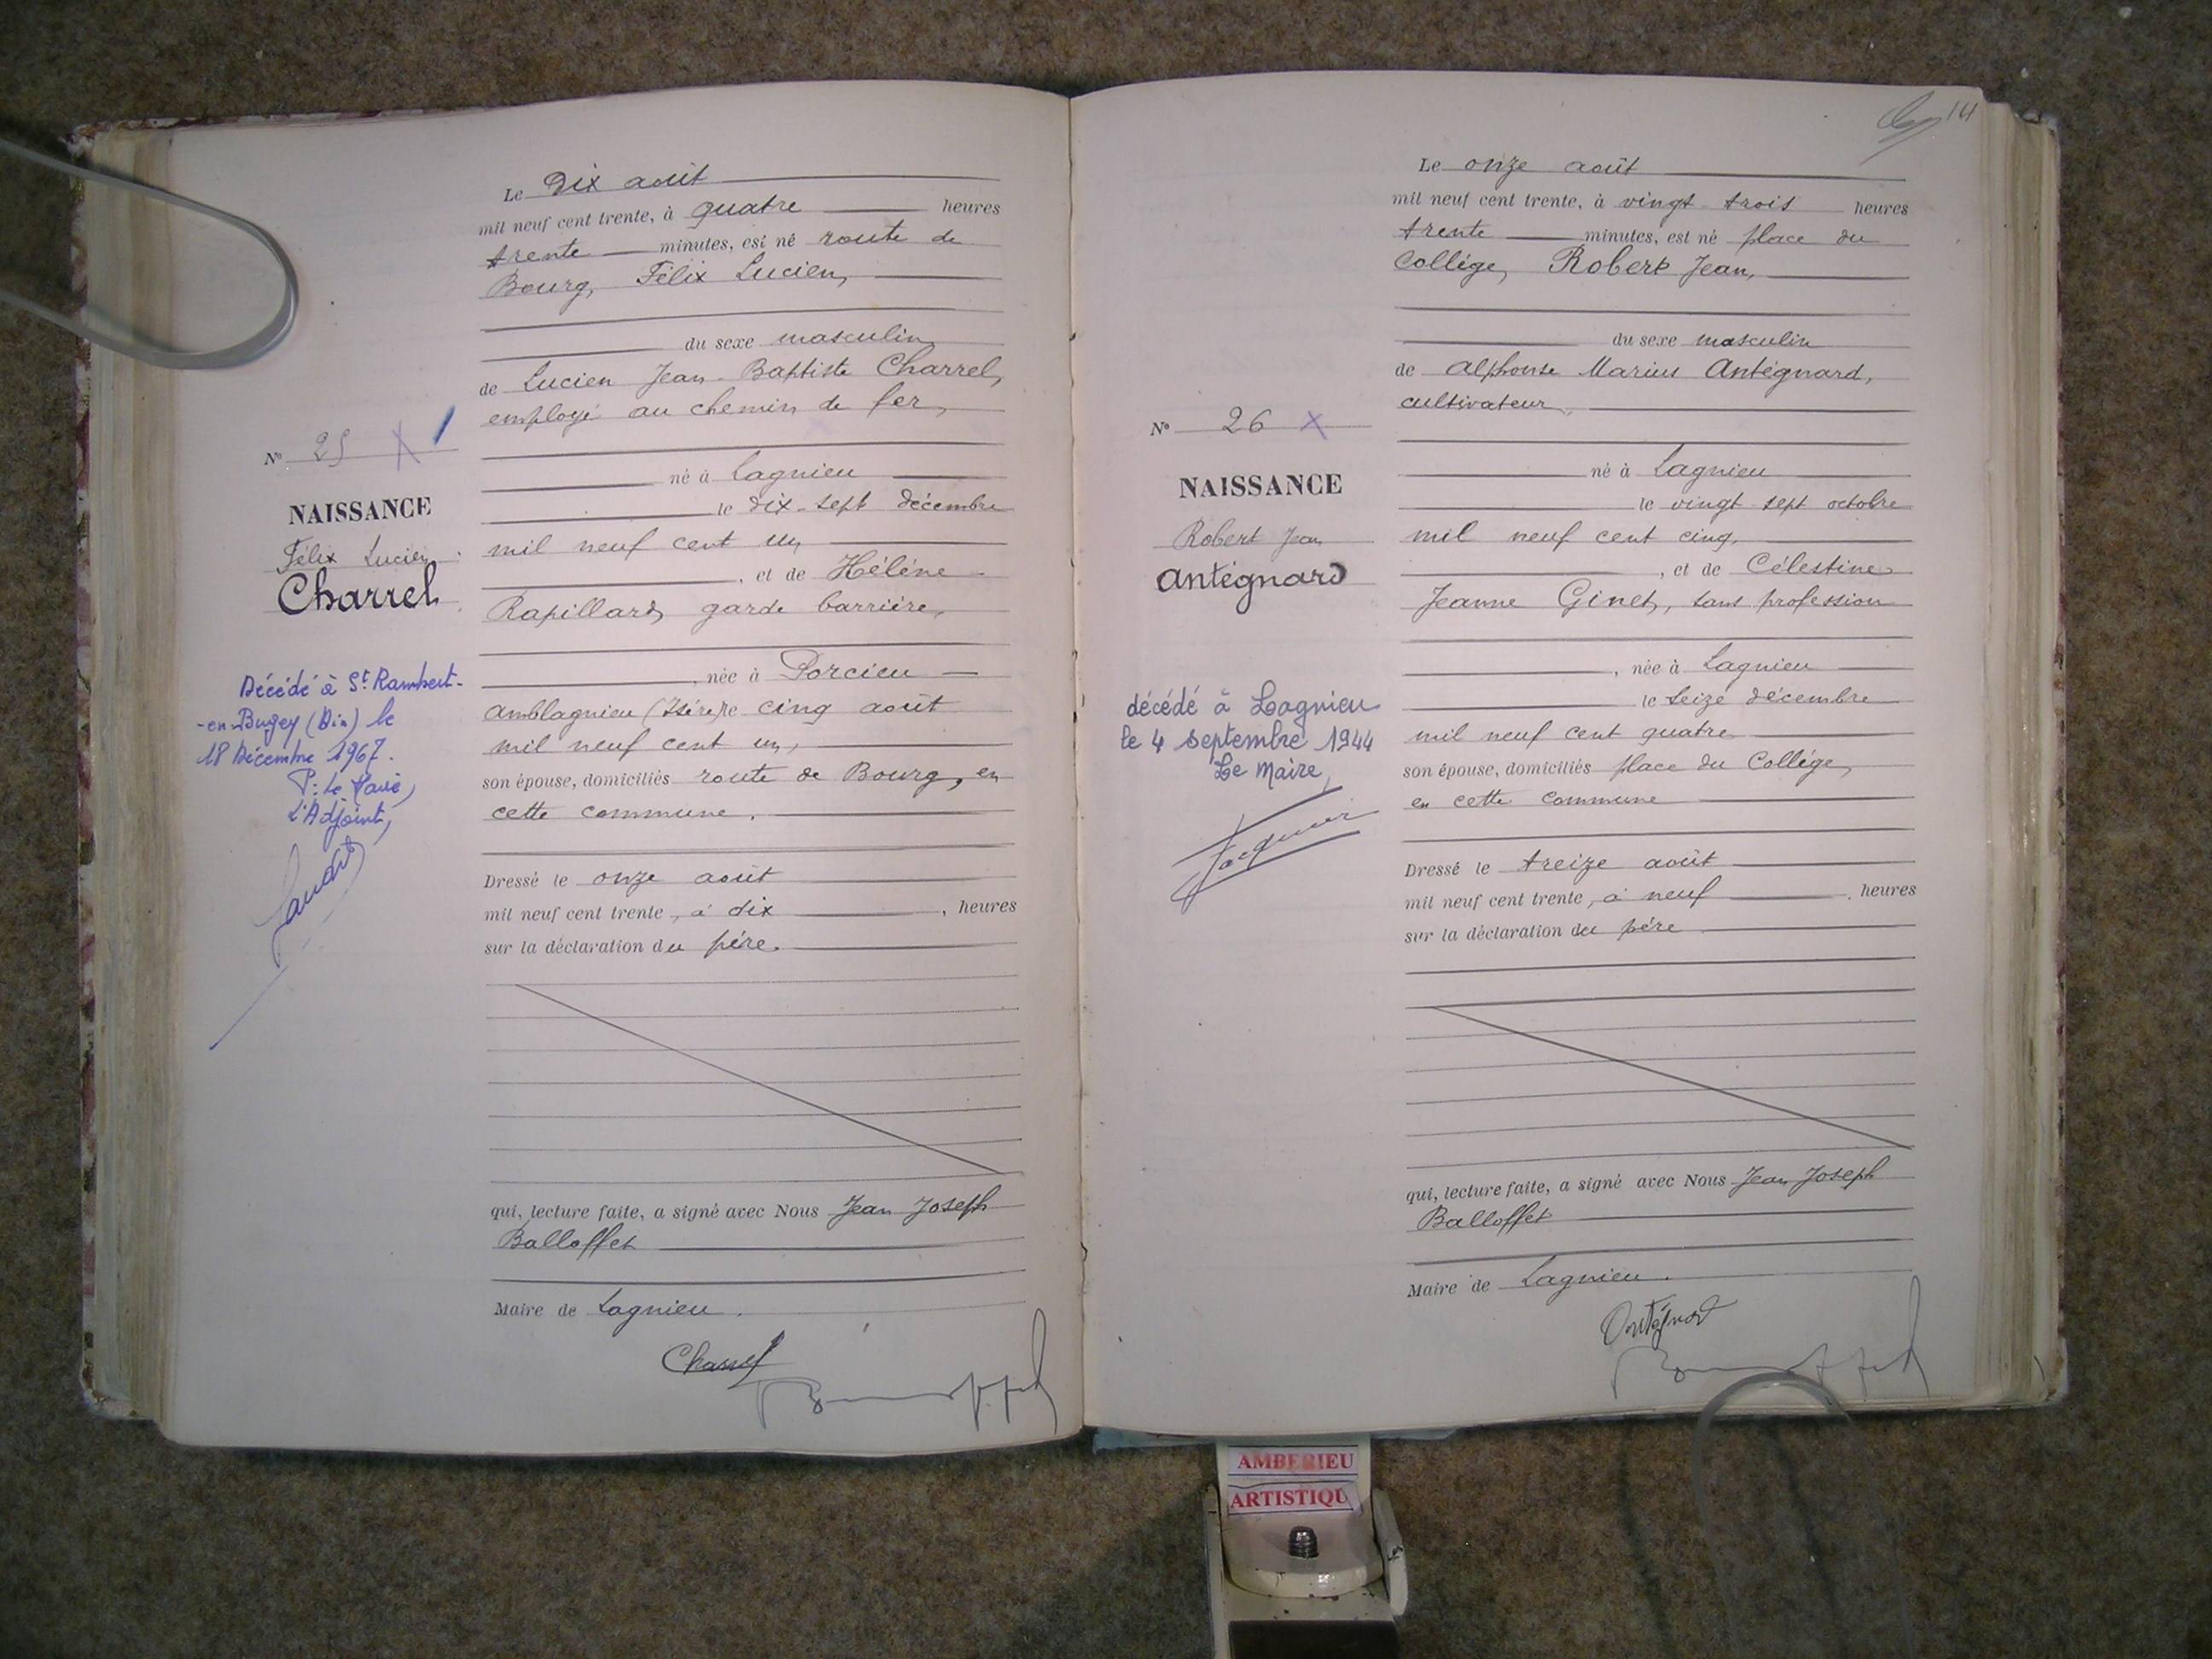 Le Dix août
mil neuf cent trente, à quatre heures
trente minutes, est né route de
Bourg, Félix Lucien,
du sexe masculin
de Lucien Jean-Baptiste Charrel,
employé au chemin de fer,
né à Lagnieu
le dix-sept décembre
mil neuf cent un,
, et de Hélène
Rapillard, garde barrière,
, née à Porcieu
Amblagnieu (Isère) le cinq août
mil neuf cent un,
son épouse, domiciliés route de Bourg, en
cette commune.
Dressé le onze août
mil neuf cent trente, à dix , heures
sur la déclaration du père.
qui, lecture faite, a signé avec Nous Jean Joseph
Balloffet
Maire de Lagnieu.
Charrel
N° 25 X
NAISSANCE
Félix Lucien
Charrel
Décédé à St Rambert-
-en-Bugey (Ain) le
18 Décembre 1967.
P: Le Maire,
L'Adjoint,
14
Le onze août
mil neuf cent trente, à vingt trois heures
trente minutes, est né place du
Collège, Robert Jean,
du sexe masculin
de Alphonse Marius Antégnard,
cultivateur,
né à Lagnieu
le vingt sept octobre
mil neuf cent cinq,
, et de Célestine
Jeanne Ginet, sans profession
, née à Lagnieu
le seize décembre
mil neuf cent quatre
son épouse, domiciliés place du Collège,
en cette commune
Dressé le treize août
mil neuf cent trente, à neuf , heures
sur la déclaration du père
qui, lecture faite, a signé avec Nous Jean Joseph
Balloffet
Maire de Lagnieu.
Antégnard
N° 26 X
NAISSANCE
Robert Jean
Antégnard
décédé à Lagnieu
le 4 septembre 1944
Le Maire,
AMBERIEU
ARTISTIQU